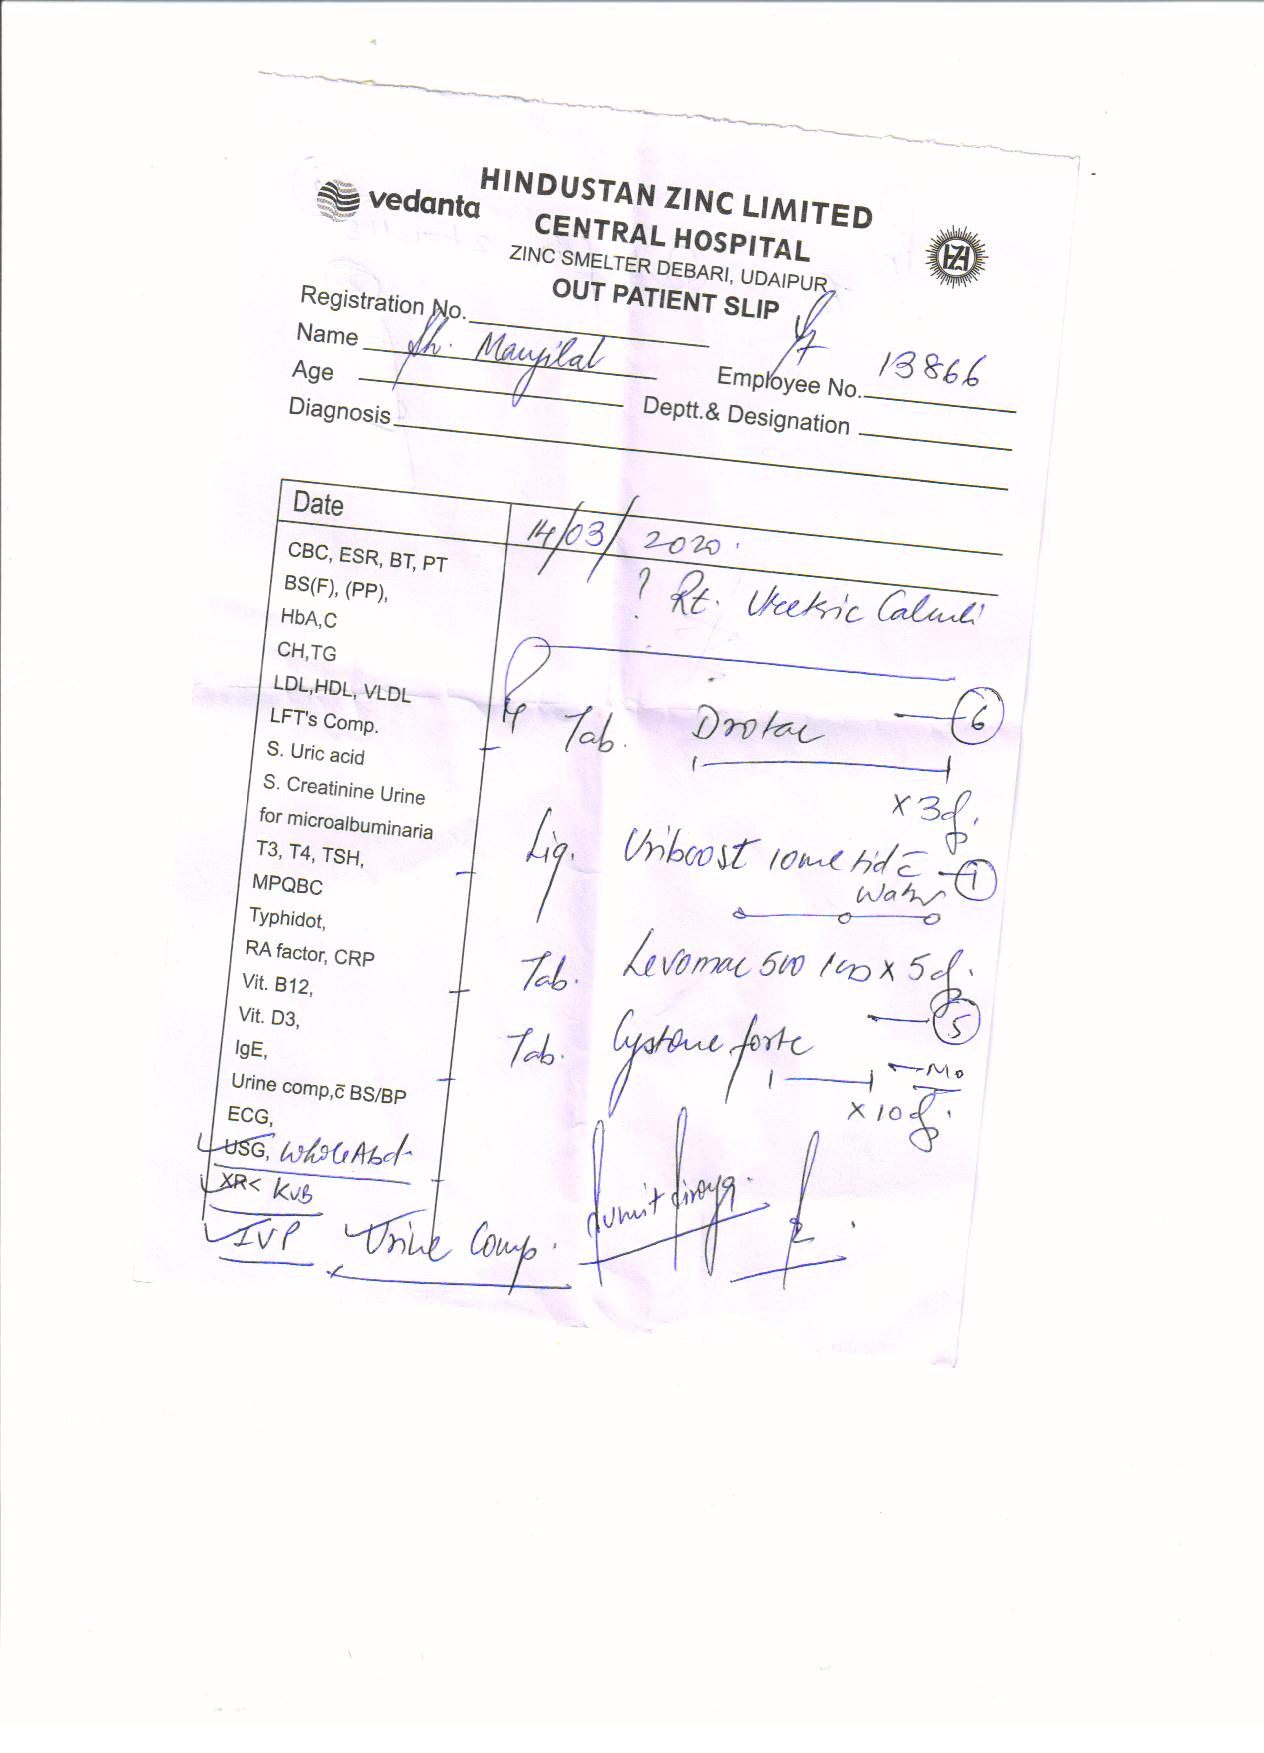 vedanta
HINDUSTAN ZINC LIMITED
CENTRAL HOSPITAL
ZINC SMELTER DEBARI, UDAIPUR
OUT PATIENT SLIP
Registration No.
Name Sh. Mangilal
Employee No. 13866
Age
Deptt.& Designation
Diagnosis
Date 14/03/2020
CBC, ESR, BT, PT
? Rt. Ureteric Calculi
BS(F), (PP),
HbA,C
CH,TG
LDL,HDL, VLDL
LFT's Comp.
Tab. Drotac 6
S. Uric acid
S. Creatinine Urine
x 3d.
for microalbuminaria
Liq. Uriboost 10ml tid c̄ 1
Water
T3, T4, TSH,
MPQBC
Typhidot,
RA factor, CRP
Tab. Levomac 500 1 OD x 5d.
5
Vit. B12,
Vit. D3,
Tab. Cystone forte
IgE,
x 10d.
Urine comp,c̄ BS/BP
ECG,
USG, Whole Abd
XR< KUB
IVP Urine Comp.